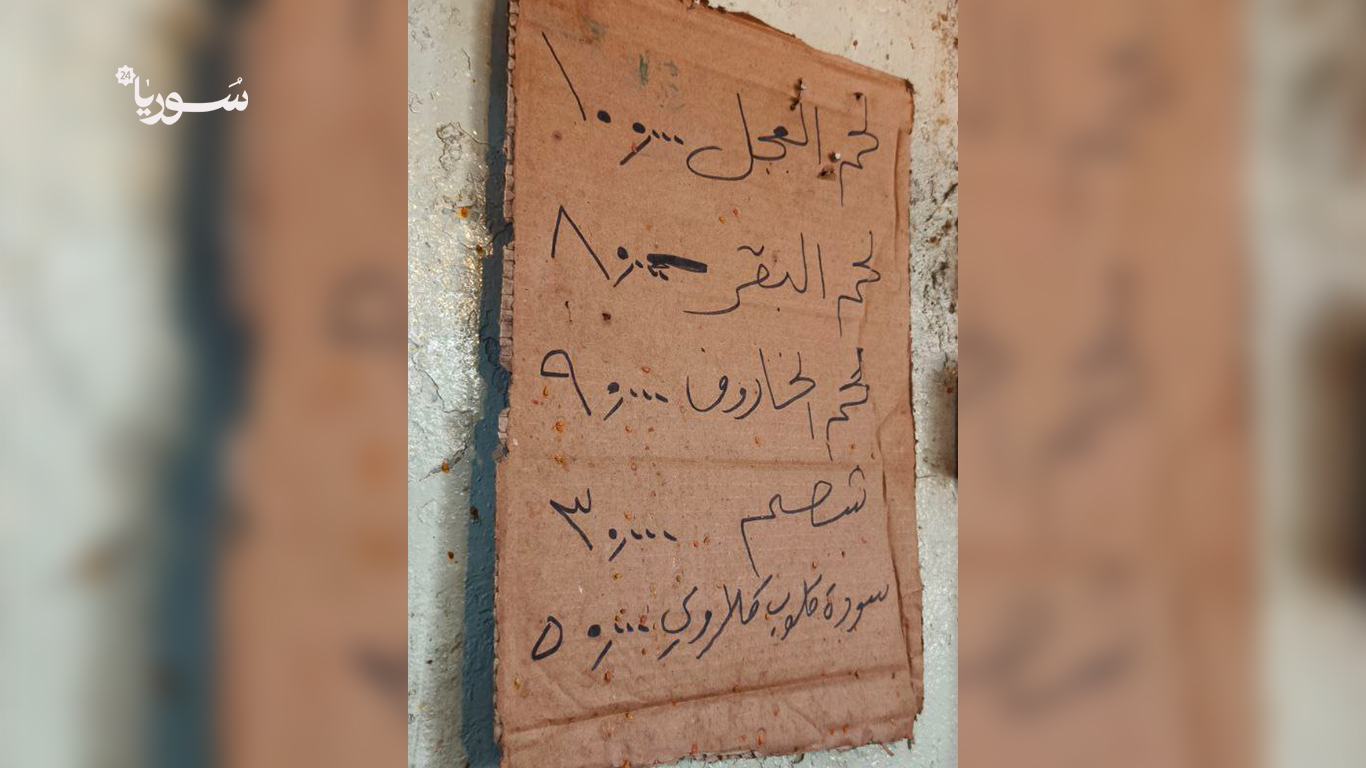 سوريا 24
لحم العجل ١٠٠,٠٠٠
لحم البقر ٨٠,٠٠٠
لحم الخاروف ٩٠,٠٠٠
شحم ٣٠,٠٠٠
سودة قلوب كلاوي ٥٠,٠٠٠